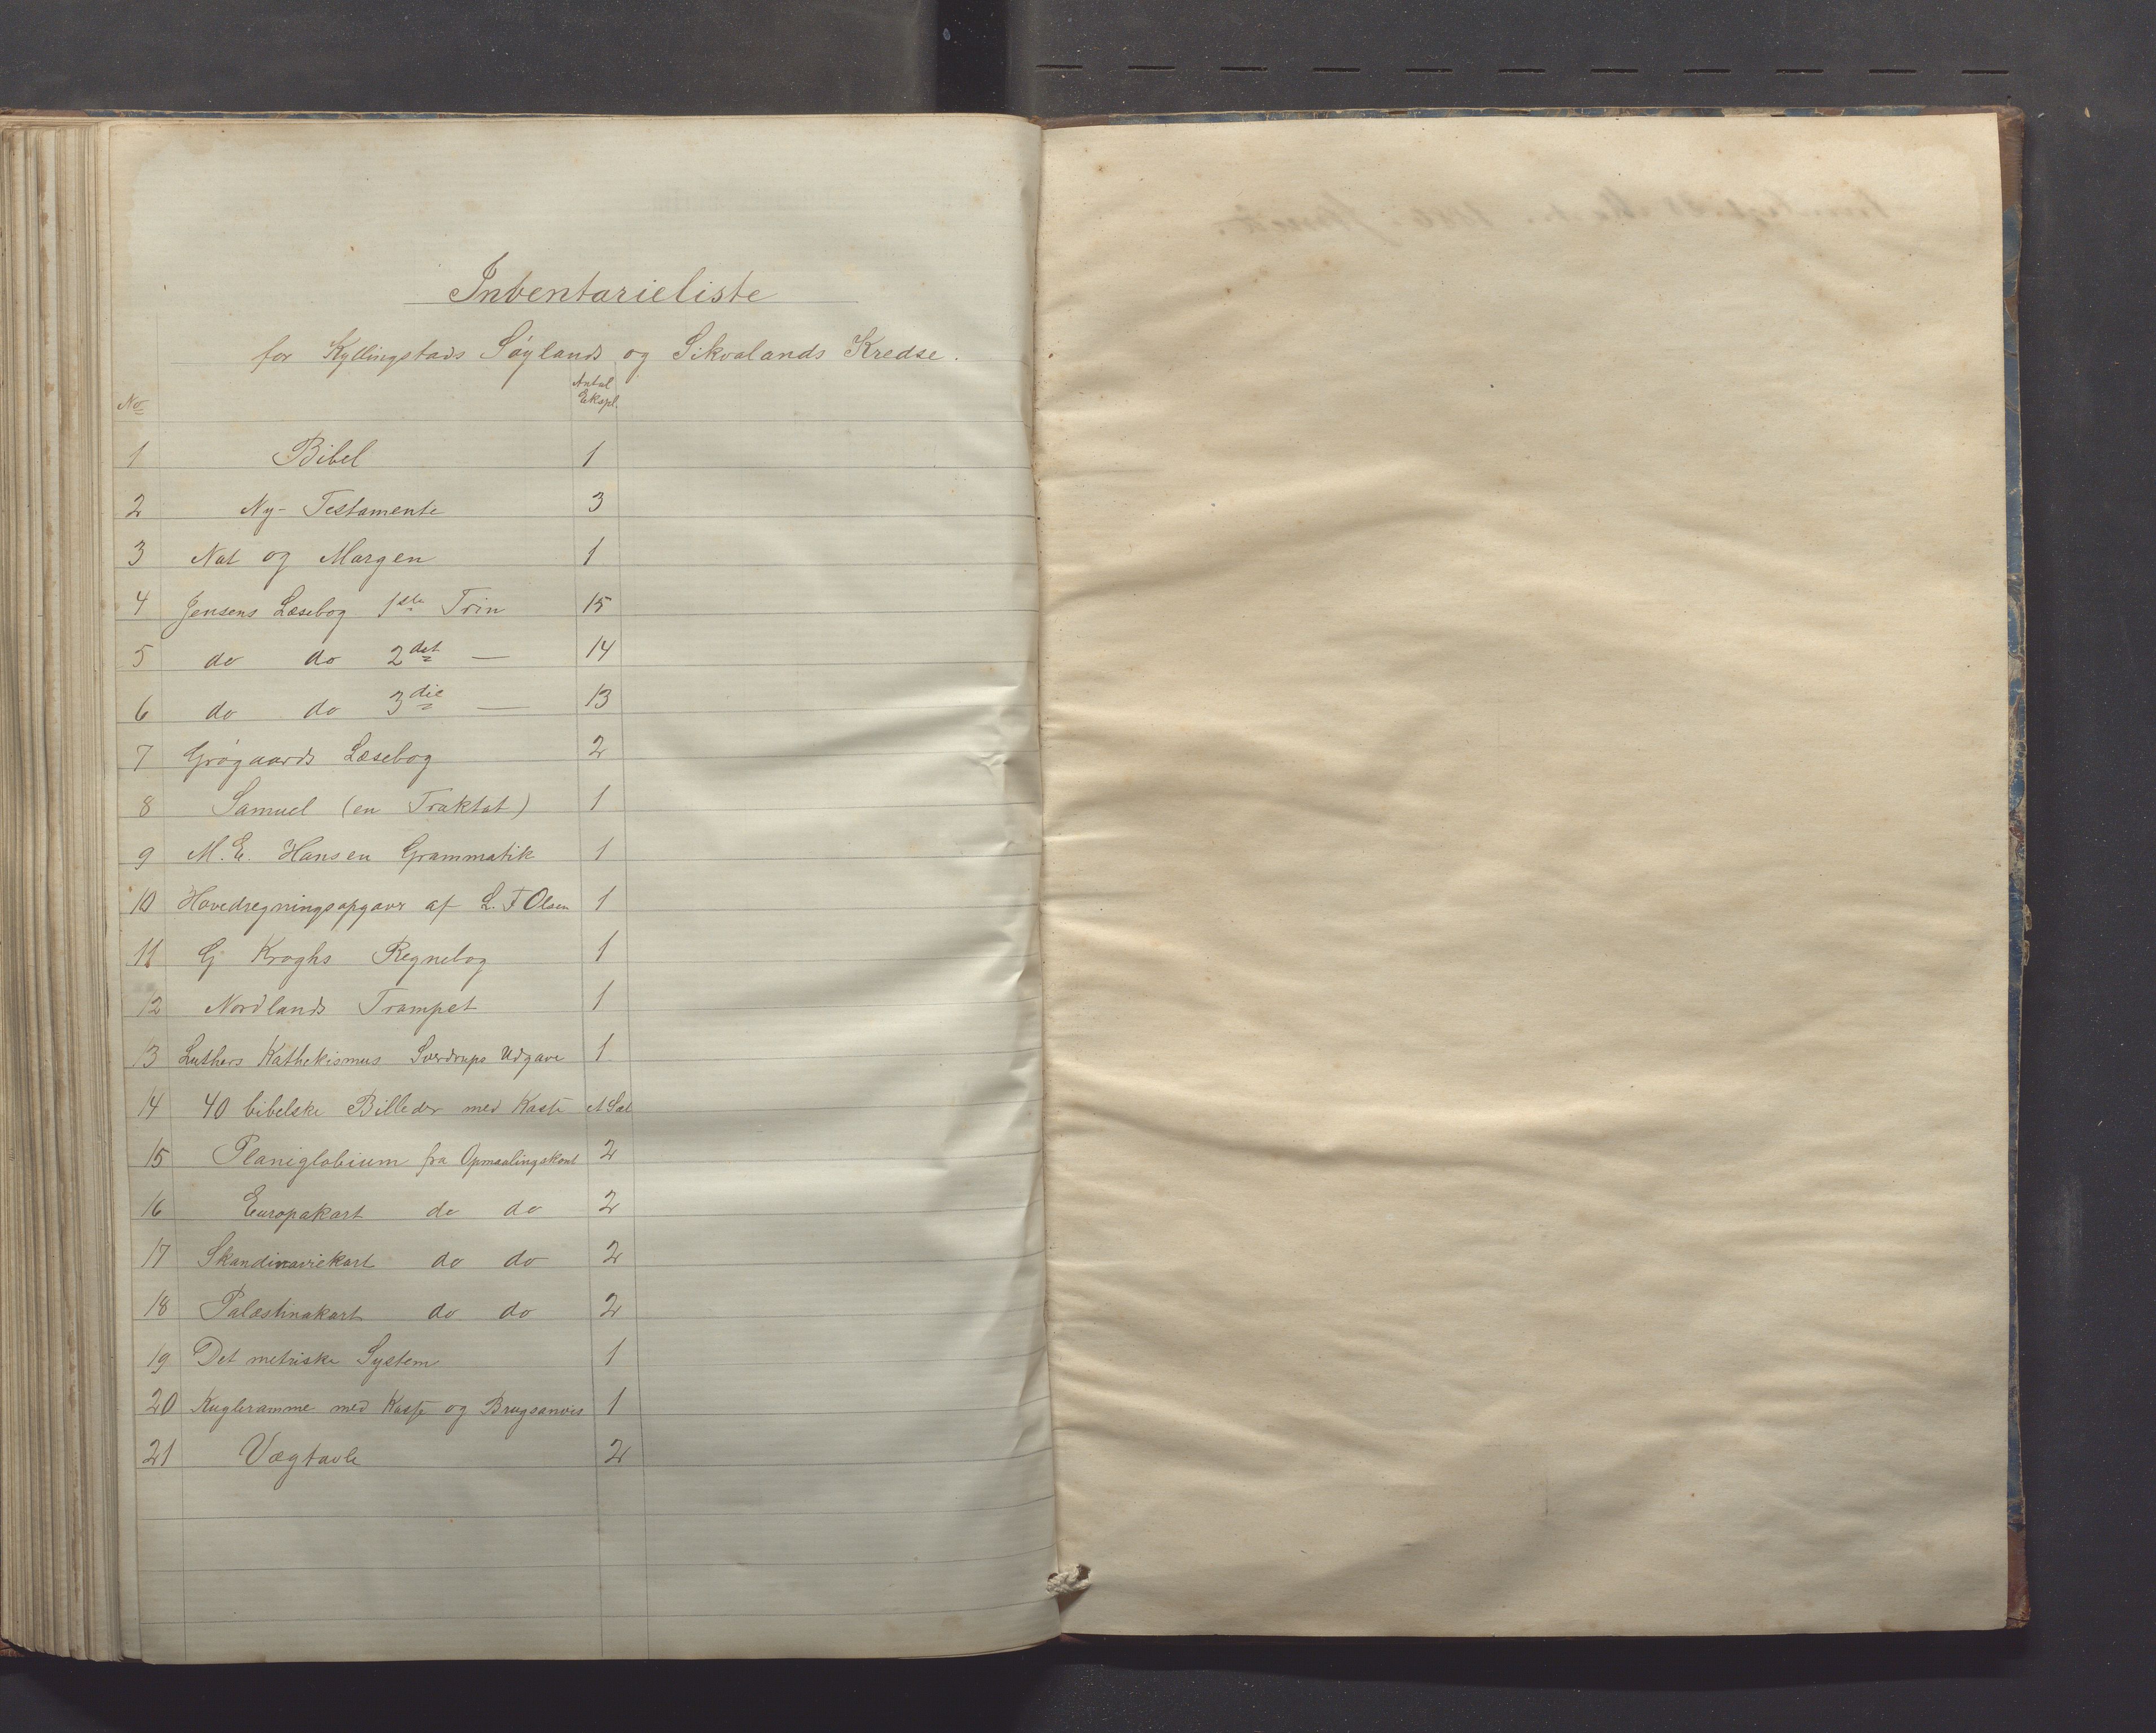 Inventarieliste
for Kyllingstads Søylands og Sikvalands Kredse.
No Antal Ekspl.
1 Bibel 1
2 Ny-Testamente 3
3 Nat og Morgen 1
4 Jensens Læsebog 1ste Trin 15
5 do do 2det — 14
6 do do 3die — 13
7 Grøgaards Læsebog 2
8 Samuel (en Traktat) 1
9 M. E. Hansen Grammatik 1
10 Hovedregningsopgaver af L. F Olsen 1
11 G Kroghs Regnebog 1
12 Nordlands Trompet 1
13 Luthers Kathekismus Sverdrups Udgave 1
14 40 bibelske Billeder med Kasse et Sæt
15 Planiglobium fra Opmaalingskont 2
16 Europakart do do 2
17 Skandinaviekart do do 2
18 Palæstinakart do do 2
19 Det metriske System 1
20 Kugleramme med Kasse og Brugsanvis 1
21 Vægtavle 2